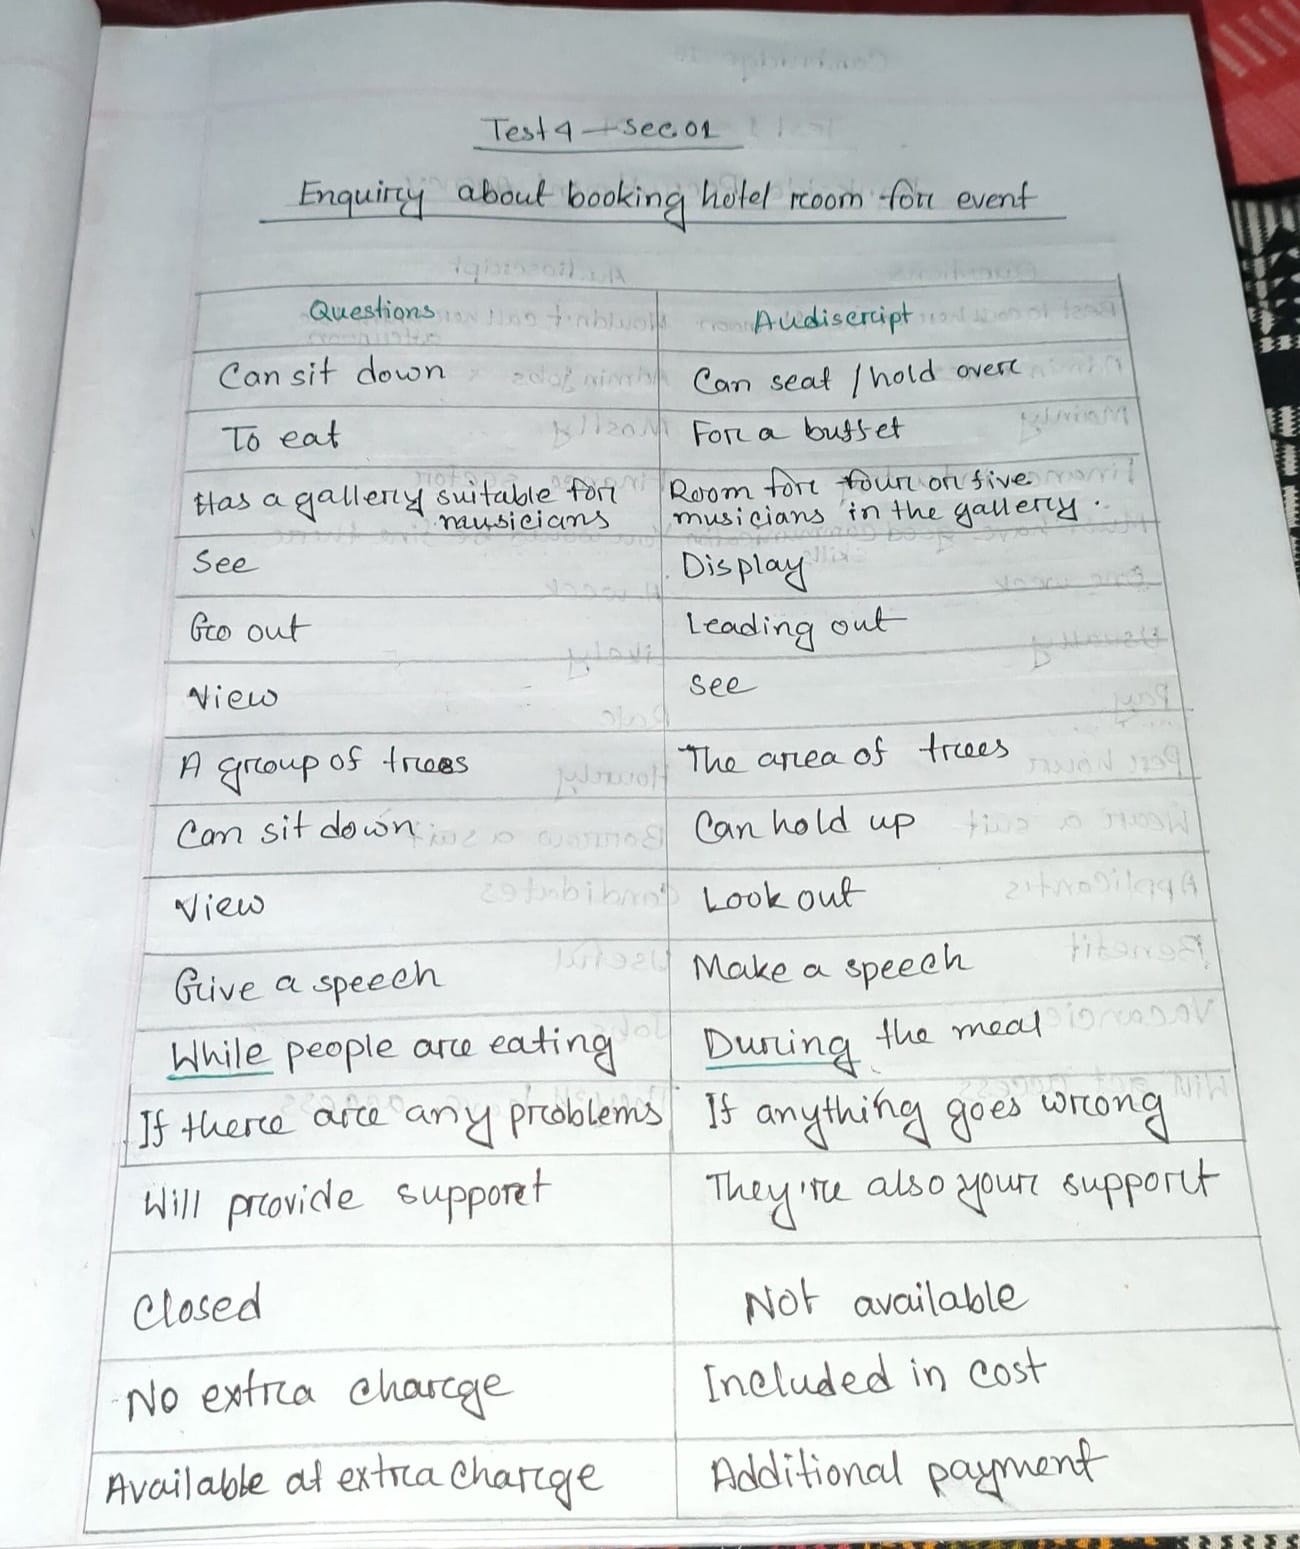 Test 4 – Sec. 01
Enquiry about booking hotel room for event
Questions Audiscript
Can sit down Can seat / hold over
To eat For a buffet
Has a gallery suitable for Room for four or five
musicians musicians in the gallery.
See Display
Go out Leading out
View See
A group of trees The area of trees
Can sit down Can hold up
View Look out
Give a speech Make a speech
While people are eating During the meal
If there are any problems If anything goes wrong
Will provide support They're also your support
Closed Not available
No extra charge Included in cost
Available at extra charge Additional payment